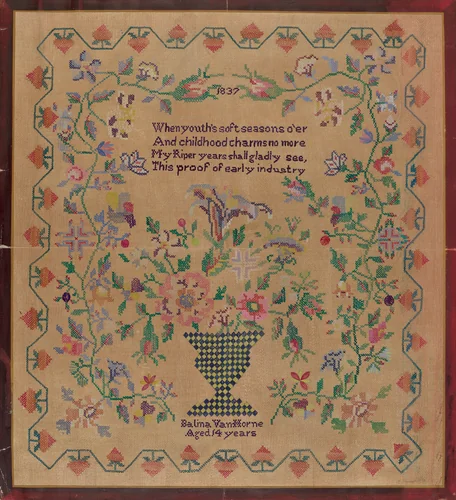 1837
When youth's soft seasons o'er
And childhood charms no more
My Riper years shall gladly see,
This proof of early industry
Salma VanHorne
Aged 14 years